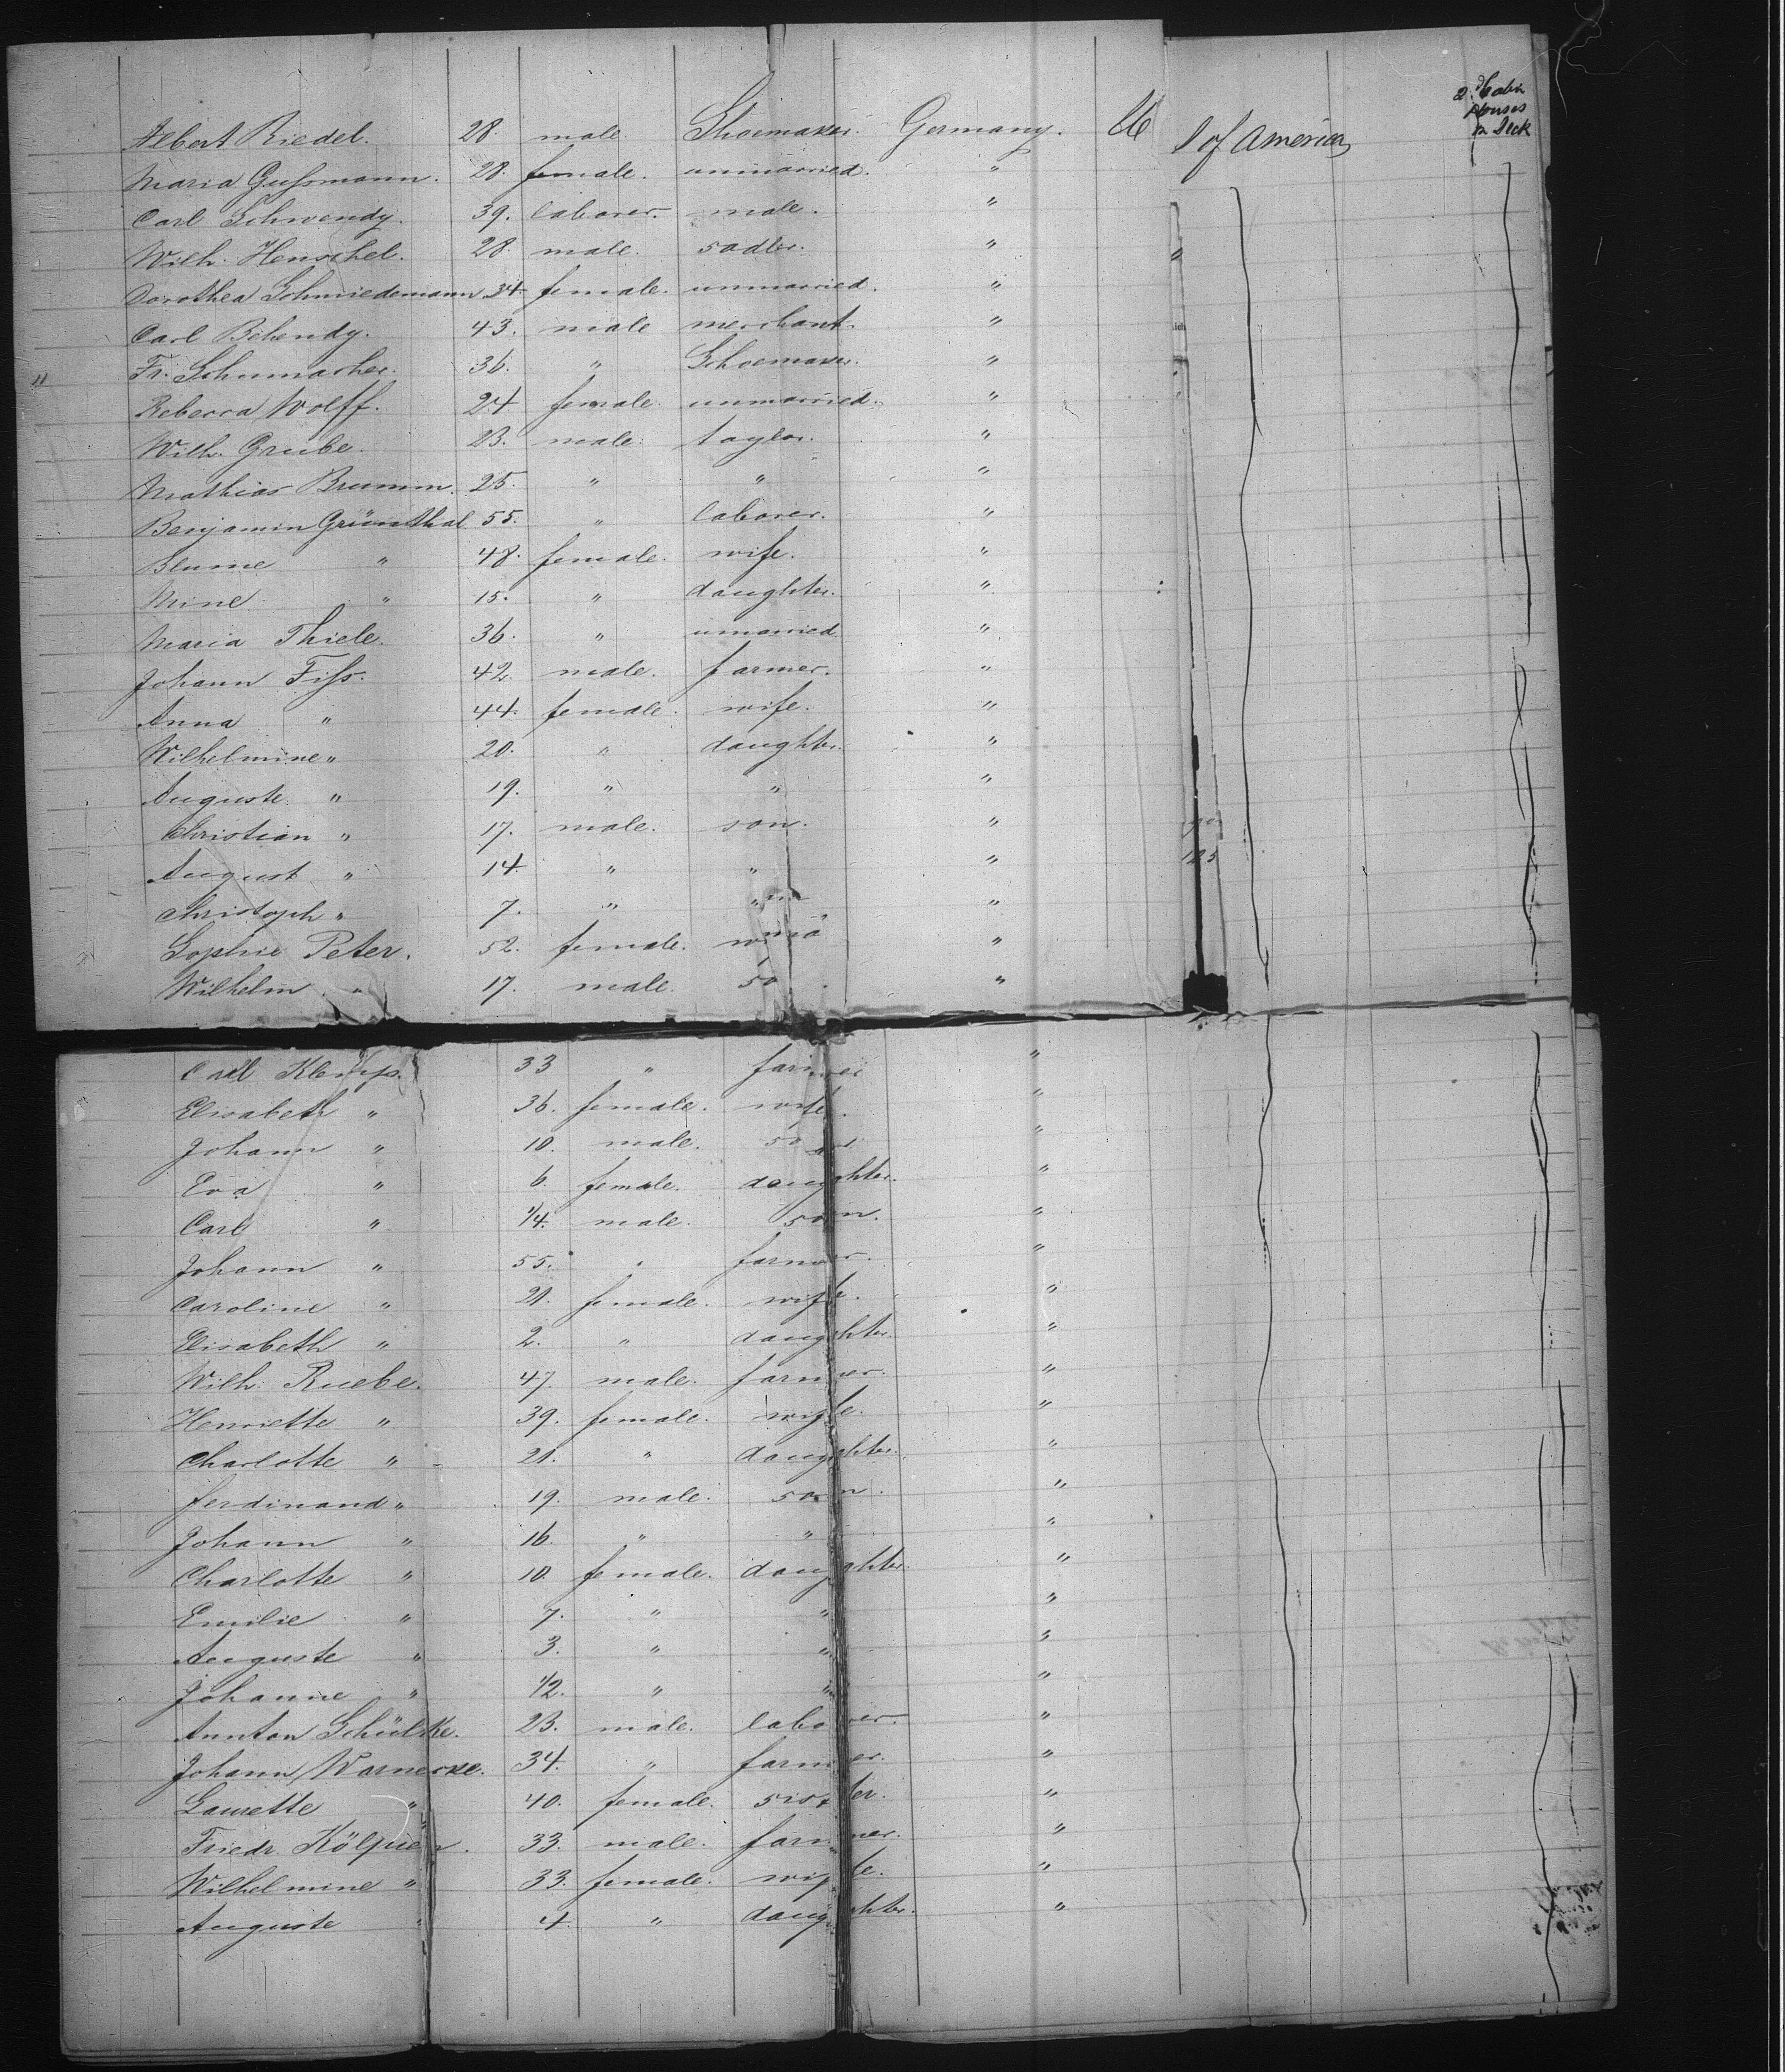 2 Cabin
Houses
on Deck
Albert Riedel. 28. male. Shoemaker. Germany. U S of America
Maria Gussmann. 28. female. unmarried. "
Carl Schwendy. 39. laborer. male. "
Wilh. Henschel. 28. male. sadler. "
Dorothea Schmiedemann. 34. female. unmarried. "
Carl Behendy. 43. male merchant. "
Fr. Schumacher. 36. " Schoemaker. "
Rebecca Wolff. 24 female unmarried. "
Wilh. Grube. 23. male. taylor. "
Mathias Brumm. 25. " " "
Benjamin Grünthal. 55. " laborer. "
Blume " 48. female. wife. "
Mine " 15. " daughter. "
Maria Thiele. 36. " unmarried. "
Johann Fiss. 42. male. farmer. "
Anna " 44. female. wife. "
Wilhelmine " 20. " daughter. "
Auguste " 19. " " "
Christian " 17. male. son. "
August " 14. " " "
Christoph " 7. " " "
Sophie Peter. 52. female. "
Wilhelm " 17. male. so "
Carl 33 " farmer "
Elisabeth " 36. female. wife. "
Johann " 10. male. son. "
Eva " 6. female. daughter. "
Carl " 1/4. male. son. "
Johann " 55. " farmer. "
Caroline " 21. female. wife. "
Elisabeth " 2. " daughter. "
Wilh. Ruebe. 47. male. farmer. "
Henriette " 39. female. wife. "
Charlotte " 21. " daughter. "
Ferdinand " 19. male. son. "
Johann " 16. " " "
Charlotte " 10. female. daughter. "
Emilie " 7. " " "
Auguste " 3. " " "
Johanne " 1/2. " " "
Annton Schülke. 23. male. laborer. "
Johann Warnecke. 34. " farmer. "
Laurette " 40. female. sister. "
Friedr. Kölpien. 33. male. farmer. "
Wilhelmine " 33. female. wife. "
Auguste " 4. " daughter. "